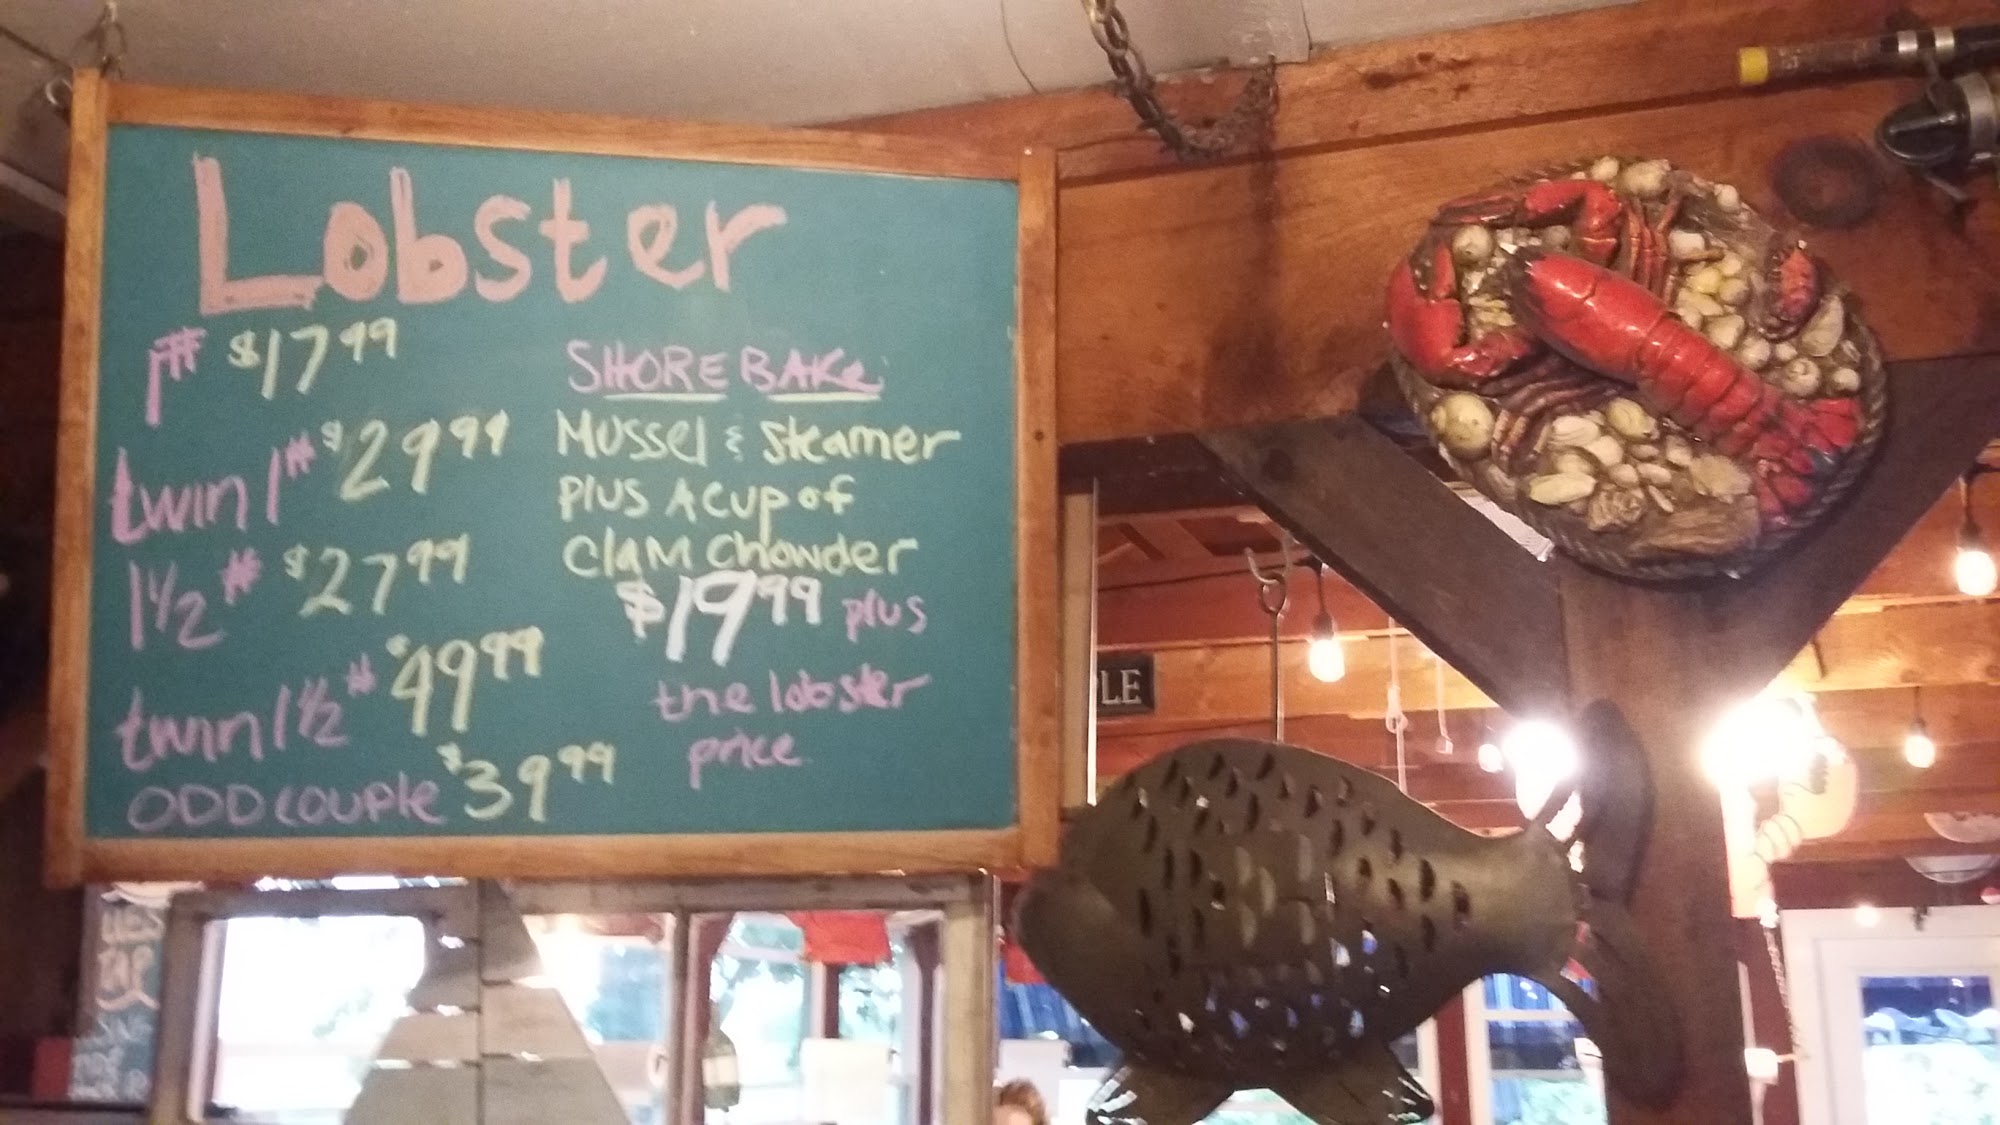 Lobster
1# $17.99
twin 1# $29.99
1½# $27.99
twin 1½# $49.99
ODD couple $39.99
SHORE BAKe
Mussel & Steamer
Plus A Cup of
Clam Chowder
$19.99 plus
the lobster
price
LE
TAP